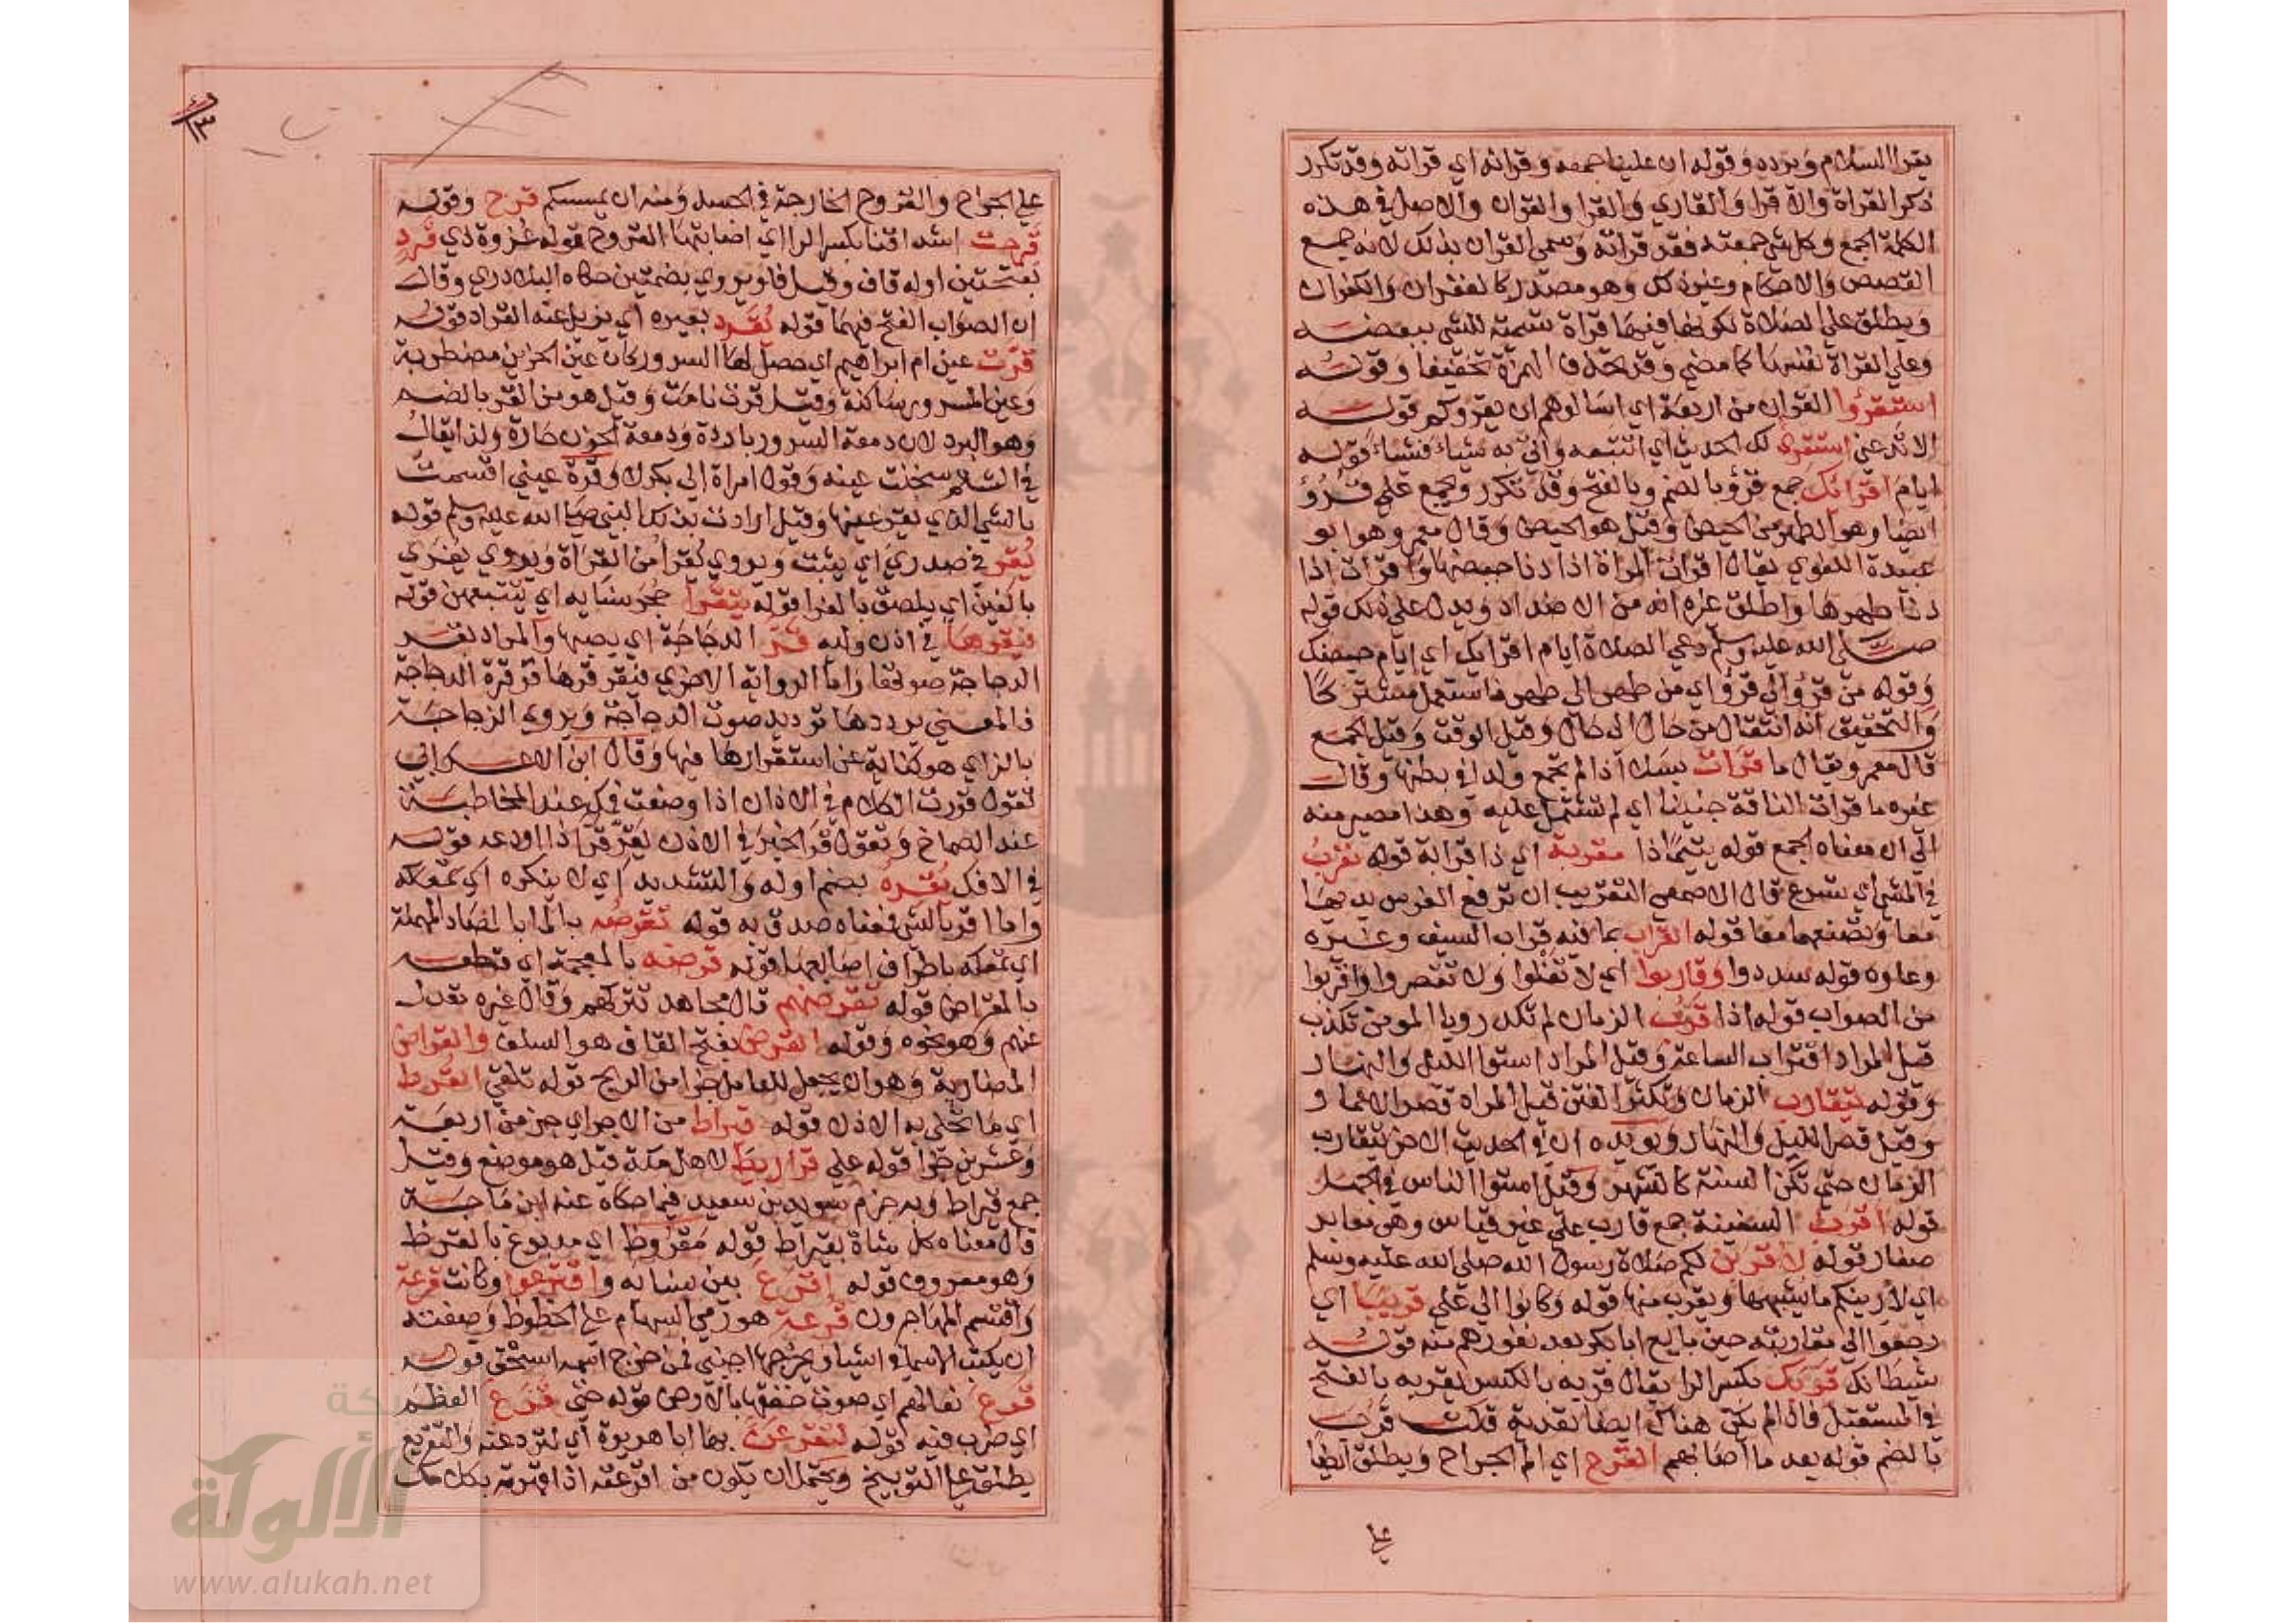 يقرا السلام ويرده وقوله ان علينا جمعه وقرانه اي قراته وقد تكرر
ذكر القراة والاقرا والقاري والقرا والقران والاصل في هذه
الكلمة الجمع وكل شي جمعته فقد قراته وسمي القران بذلك لانه جمع
القصص والاحكام وغير ذلك وهو مصدر كالغفران والكفران
ويطلق على الصلاة لكونها فيها قراة تسمية للشي ببعضه
وعلى القراة نفسها كما مضى وقد تحذف الهمزة تخفيفا وقوله
استقرؤا القران من اربعة اي اسالوهم ان يقروكم قوله
الا تدعني استقري لك الحديث اي اتتبعه واتي به شياء فشياء قوله
ايام اقرائك جمع قرؤ بالضم وبالفتح وقد تكرر ويجمع على قروُ
ايضا وهو الطهر من الحيض وقيل هو الحيض وقال معمر وهو ابو
عبيدة اللغوي يقال اقرات المراة اذا دنا حيضها واقرات اذا
دنا طهرها واطلق غيره انه من الاضداد ويدل على ذلك قوله
صلى الله عليه وسلم دعي الصلاة ايام اقرايك اي ايام حيضك
وقوله من قرؤ الى قرؤ اي من طهر الى طهر فاستعمل مشتركا
والتحقيق انه انتقال من حال الى حال وقيل الوقت وقيل الجمع
قال معمر ويقال ما قرات بسلا اذا لم تجمع ولدا في بطنها وقال
غيره ما قرات الناقة جنينا اي لم تشتمل عليه وهذا مصير منه
الى ان معناه الجمع قوله يتيما ذا مقربة اي ذا قرابة قوله تقرب
في المشي اي تسرع قال الاصمعي التقريب ان ترفع الفرس يديها
معا وتضعهما معا قوله القراب بما فيه قراب السيف وغيره
وعاوه قوله سددوا وقاربوا اي لا تغلوا ولا تقصروا واقربوا
من الصواب قوله اذا قرب الزمان لم تكد رويا المومن تكذب
قيل المراد اقتراب الساعة وقيل المراد استوا الليل والنهار
وقوله يتقارب الزمان وتكثر الفتن قيل المراد قصر الاعمار و
وقيل قصر الليل والنهار ويويده ان في الحديث الاخر يتقارب
الزمان حتى تكن السنة كالشهر وقيل استوا الناس في الجهل
قوله اقرب السفينة جمع قارب على غير قياس وهي معابد
صغار قوله لاقربن لكم صلاة رسول الله صلى الله عليه وسلم
اي لارينكم ما يشبهها ويقرب منها قوله وكانوا الى علي قريبا اي
رجعوا الى مقاربته حين بايع ابا بكر بعد نفورهم منه قوله
شيطانك قربك بكسر الرا يقال قربه بالكسر يقربه بالفتح
في المستقبل فان لم يكن هناك ايضا تعدية قلت قرب
بالضم قوله بعد ما اصابهم القرح اي الم الجراح ويطلق ايضا
على الجراح والقروح الخارجة في الجسد ومنه ان يمسسكم قرح وقوله
قرحت اشداقنا بكسر الرا اي اصابتها القروح قوله غزوة ذي قرد
بفتحتين اوله قاف وقيل فا ويروى بضمتين حكاه البلاذري وقال
ان الصواب الفتح فيهما قوله يقرد بعيره اي يزيل عنه القراد قوله
قرت عين ام ابراهيم اي حصل لها السرور وكان عين الحزين مضطربة
وعين المسرور ساكنة وقيل قرت نامت وقيل هو من القر بالضم
وهو البرد لان دمعة السرور باردة ودمعة الحزن حارة ولذا يقال
في الشتم سخنت عينه وقول امراة ابي بكر لا وقرة عيني اقسمت
بالشي الذي يقر عينها وقيل ارادت بذلك النبي صلى الله عليه وسلم قوله
يقر في صدري اي يثبت ويروى يقرا من القراة ويروى يغري
بالغين اي يلصق بالغرا قوله يتقرا حجر نسايه اي يتتبعهن قوله
فيقرها في اذن وليه قر الدجاجة اي يصبها والمراد بقر
الدجاجة صوتها واما الرواية الاخرى فيقرقرها قرقرة الدجاجة
فالمعنى يرددها ترديد صوت الدجاجة ويروى الزجاجة
بالزاي هو كناية عن استقرارها فيها وقال ابن الاعرابي
تقول قررت الكلام في الاذان اذا وضعت فيك عند المخاطبة
عند الصماخ وتقول قر الخبر في الاذن يقره قرا اذا اودعه قوله
في الافك يقره بضم اوله والتشديد اي لا ينكره اي
واما اقر بالشي فمعناه صدق به قوله تقرصه بالما بالصاد المهملة
اي تمعكه باطراف اصابعها قوله قرضه بالمعجمة اي قطعه
بالمقراض قوله تقرضهم قال مجاهد تتركهم وقال غيره تعدل
عنهم وهو نحوه وقوله القرض بفتح القاف هو السلف والقراض
المضاربة وهو ان يجعل للعامل جزا من الربح قوله تلقي القرط
اي ما تحلى به الاذن قوله قيراط من الاجر اي جز من اربعة
وعشرين جزا قوله على قراريط لاهل مكة قيل هو موضع وقيل
جمع قيراط وبه جزم سويد بن سعيد فيما حكاه عنه ابن ماجة
قال معناه كل شاة بقيراط قوله مقروظ اي مدبوغ بالقرظ
وهو معروف قوله اقرع بين نسايه واقترعوا وكانت قرعة
واقتسم المهاجرون قرعة هو رمي السهام على الخطوط وصفته
ان يكتب الاسما في اشيا ويخرجها اجنبي فمن اخرج اسمه استحق قوله
قرع نعالهم اي صوت خفقها بالارض قوله حتى قرع العظم
اي ضرب فيه قوله لتقرعن بها ابا هريرة اي لتردعنه والتقريع
يطلق على التوبيخ ويحتمل ان يكون من اقرعته اذا قهرته بكلامك
شبكة
الألوكة
www.alukah.net